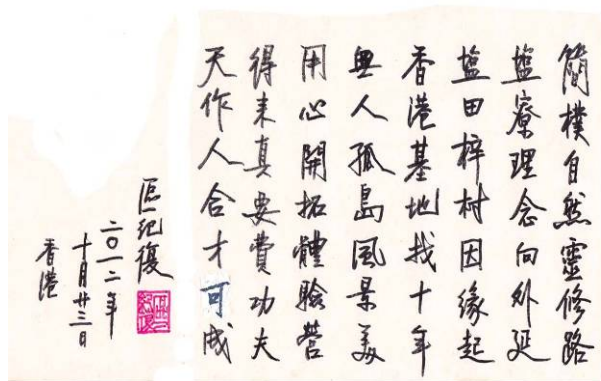 簡樸自然靈修路
塩寮理念向外延
塩田梓村因緣起
香港基地找十年
無人孤島風景美
用心開拓體驗營
得來真要費功夫
天作人合才可成
區紀復
二〇一二年
十月廿三日
香港